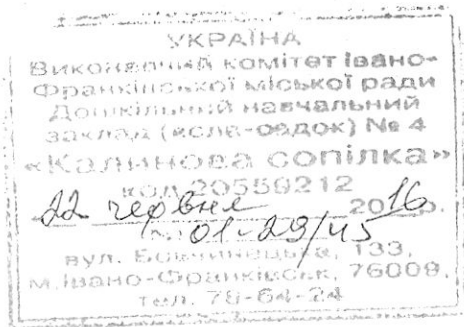 УКРАЇНА
Виконавчий комітет Івано-
Франківської міської ради
Дошкільний навчальний
заклад (ясла-садок) № 4
«Калинова сопілка»
код 20559212
22 червня 2016 р.
№ 01-29/45
вул. Бовчинецька, 133,
м.Івано-Франківськ, 76009,
тел. 78-64-24